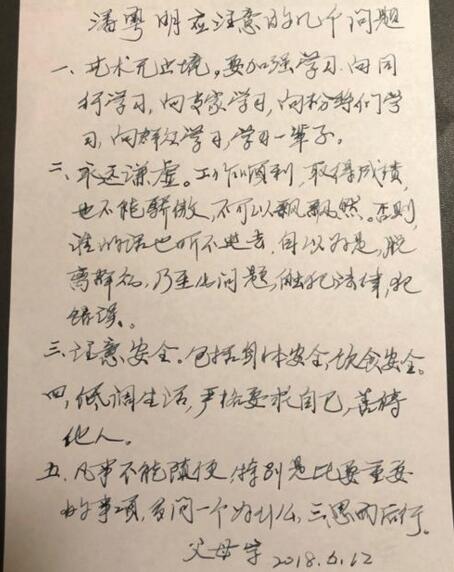 潘粤明应注意的几个问题
一、艺术无止境。要加强学习,向同
行学习,向专家学习,向粉丝们学
习,向群众学习,学习一辈子。
二、永远谦虚。工作顺利,取得成绩,
也不能骄傲,不可以飘飘然。否则,
谁的话也听不进去,自以为是,脱
离群众,乃至出问题,触犯法律,犯
错误。
三、注意安全。包括身体安全,饮食安全。
四、低调生活,严格要求自己,善待
他人。
五、凡事不能随便,特别是比较重要
的事项,多问一个为什么,三思而后行。
父母字 2018.6.12